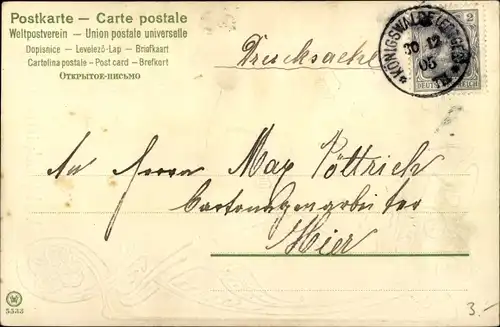 Postkarte – Carte postale
Weltpostverein – Union postale universelle
Dopisnice – Levelező-Lap – Briefkaart
Cartolina postale – Post card – Brefkort
Открытое-письмо
Drucksache
KÖNIGSWALDE
30 12
05
2
DEUTSCHES REICH
An Herrn Max Pöttrich
Cartonagenarbeiter
Hier
5333
3.-